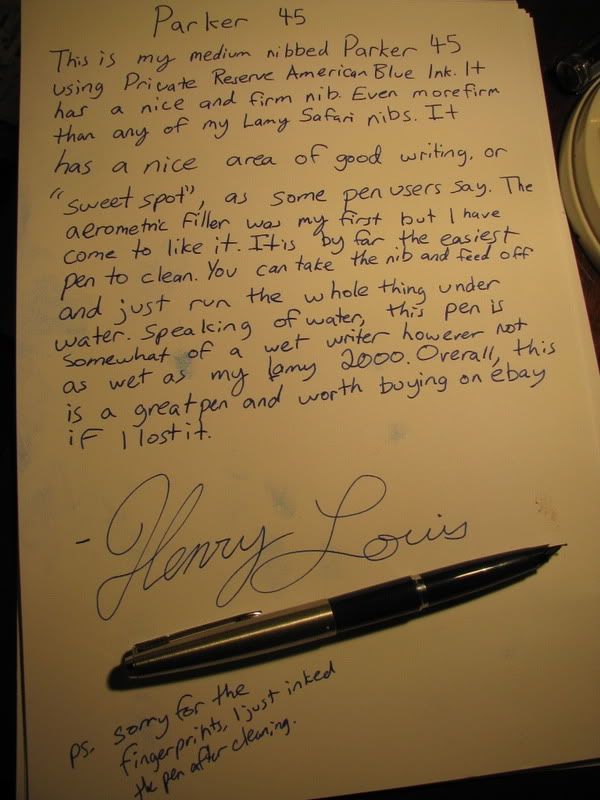 Parker 45
This is my medium nibbed Parker 45
using Private Reserve American Blue Ink. It
has a nice and firm nib. Even more firm
than any of my Lamy Safari nibs. It
has a nice area of good writing, or
"sweet spot", as some pen users say. The
aerometric filler was my first but I have
come to like it. It is by far the easiest
pen to clean. You can take the nib and feed off
and just run the whole thing under
water. Speaking of water, this pen is
somewhat of a wet writer however not
as wet as my Lamy 2000. Overall, this
is a great pen and worth buying on ebay
if I lost it.
- Henry Louis
ps. sorry for the
fingerprints, I just inked
the pen after cleaning.